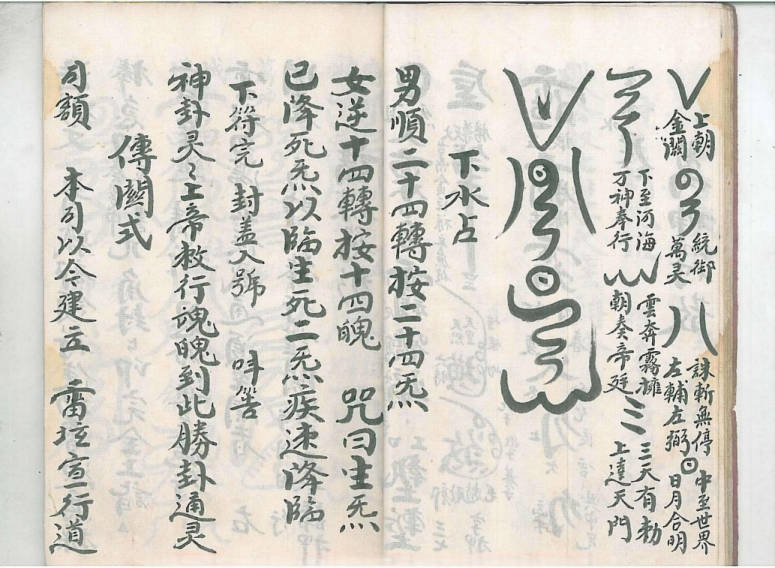 上朝
金闕
統御
萬灵
誅斬無停
左輔左弼
中至世界
日月合明
下至河海
万神奉行
雲奔霧擁
朝奏帝廷
三天有勅
上達天門
下水占
男順二十四轉按二十四炁
女逆十四轉按十四魄 咒曰生炁
已降死炁以臨生死二炁疾速降臨
下符完 封盖入號 咩筶
神卦灵〻上帝敕行魂魄到此勝卦通灵
傳關式
司額 本司以今建立 雷坛宣行道